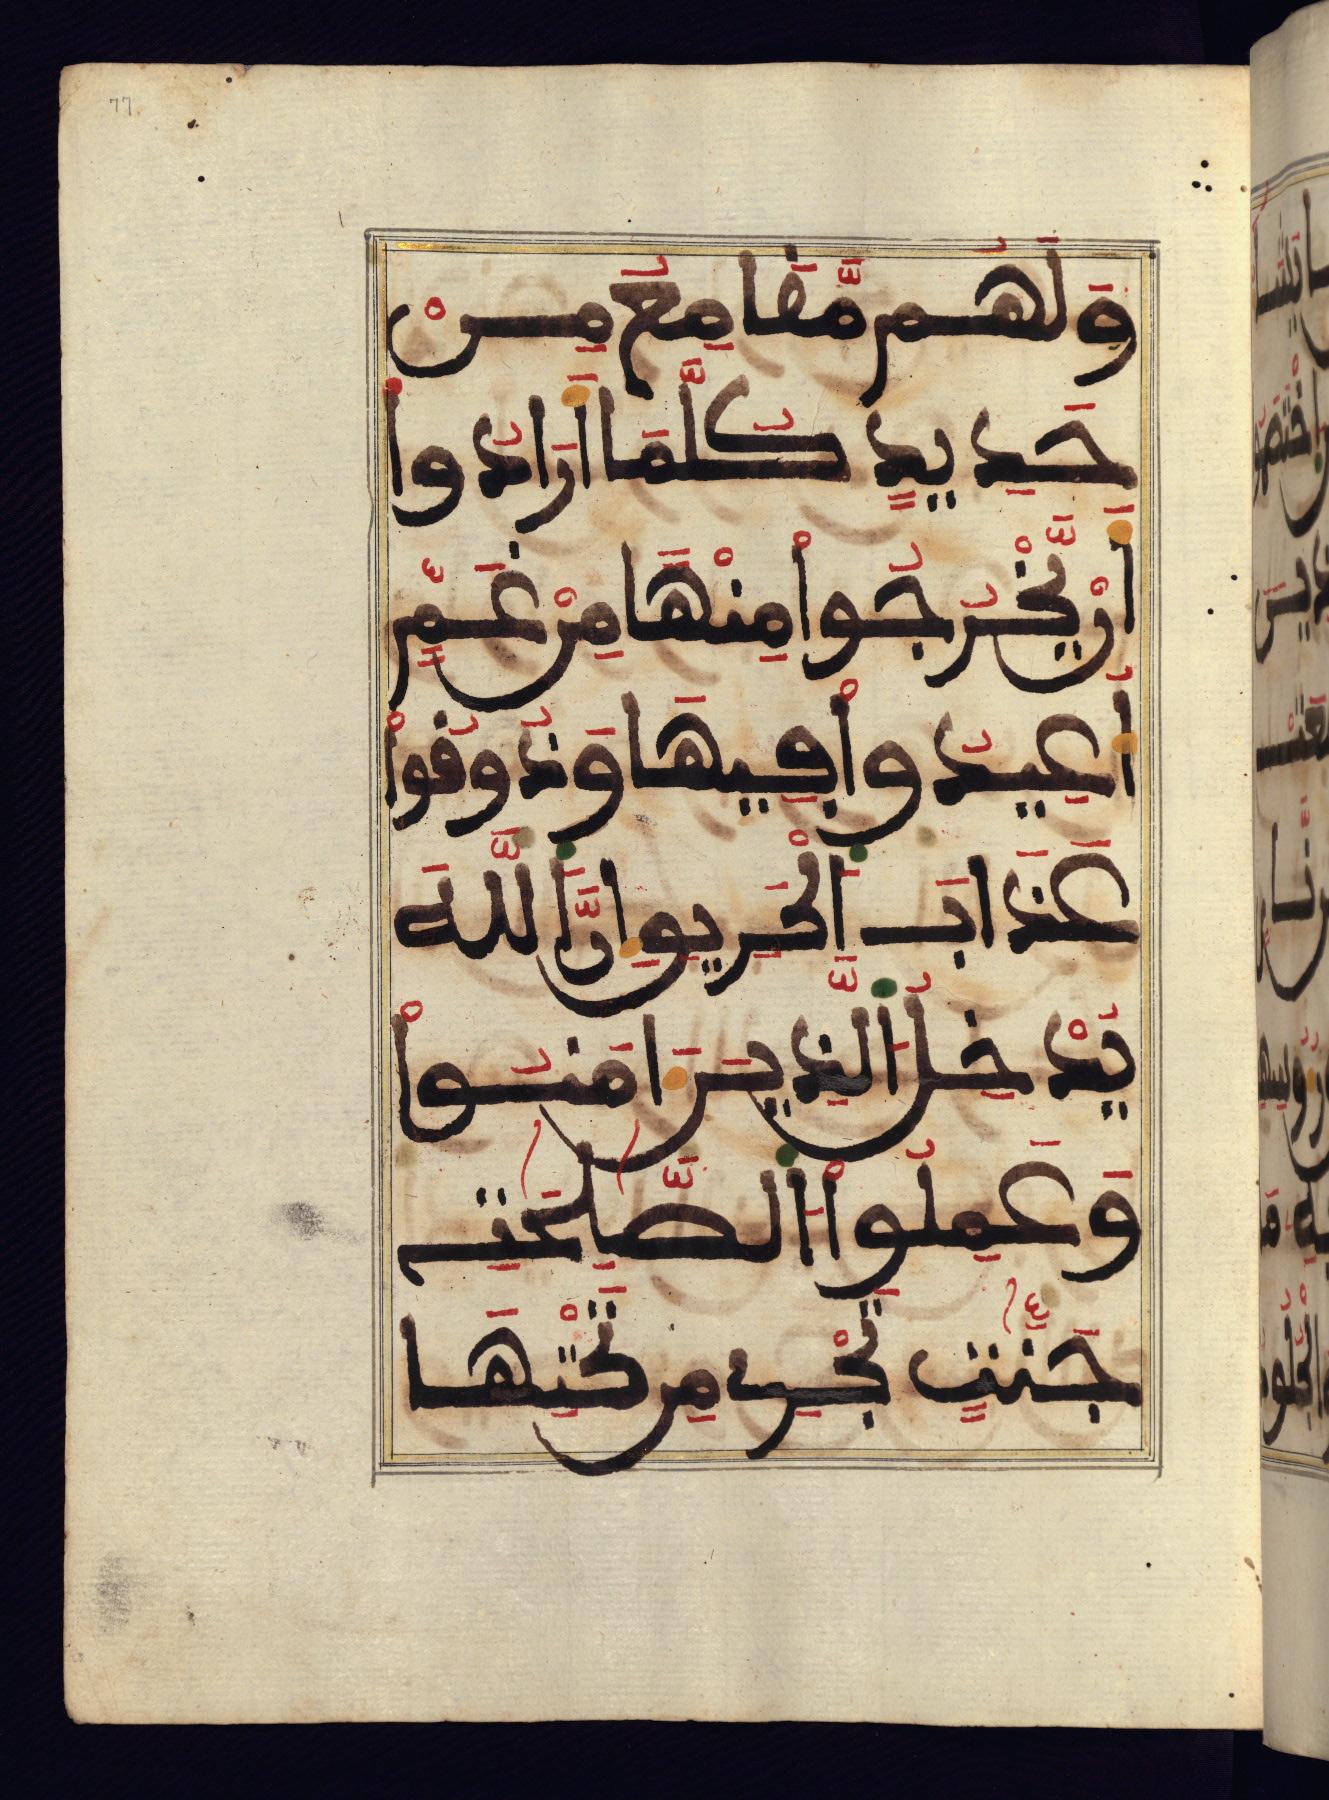 77
وَلَهُم مَّقَٰمِعُ مِنْ
حَدِيدٍ كُلَّمَا أَرَادُوا
أَنْ يَّخْرُجُوا مِنْهَا مِنْ غَمٍّ
أُعِيدُوا فِيهَا وَذُوقُوا
عَذَابَ اَلْحَرِيقِ إِنَّ اَللَّهَ
يُدْخِلُ اُلذِينَ ءَامَنُوا
وَعَمِلُوا اُلصَّٰلِحَٰتِ
جَنَّٰتٍ تَجْرِے مِن تَحْتِهَا